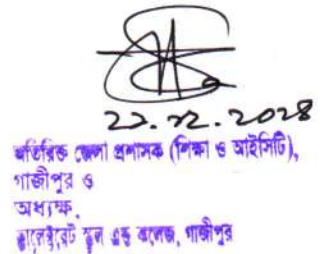 ২২.১২.২০২৪
অতিরিক্ত জেলা প্রশাসক (শিক্ষা ও আইসিটি),
গাজীপুর ও
অধ্যক্ষ,
কালেক্টরেট স্কুল এন্ড কলেজ, গাজীপুর